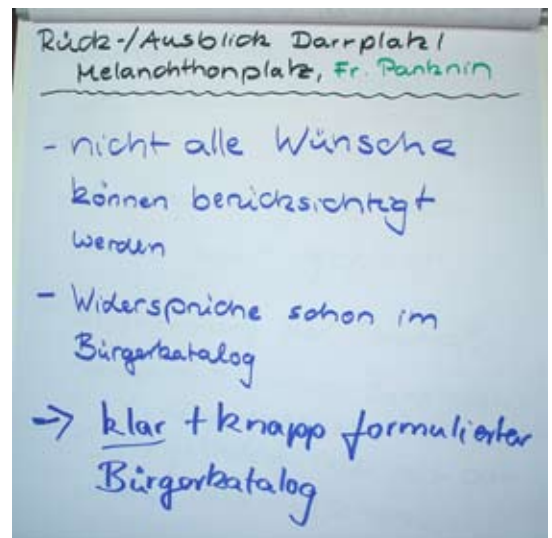 Rück-/Ausblick Darrplatz/
Melanchthonplatz, Fr. Panknin
- nicht alle Wünsche
können berücksichtigt
werden
- Widersprüche schon im
Bürgerkatalog
→ klar + knapp formulierter
Bürgerkatalog